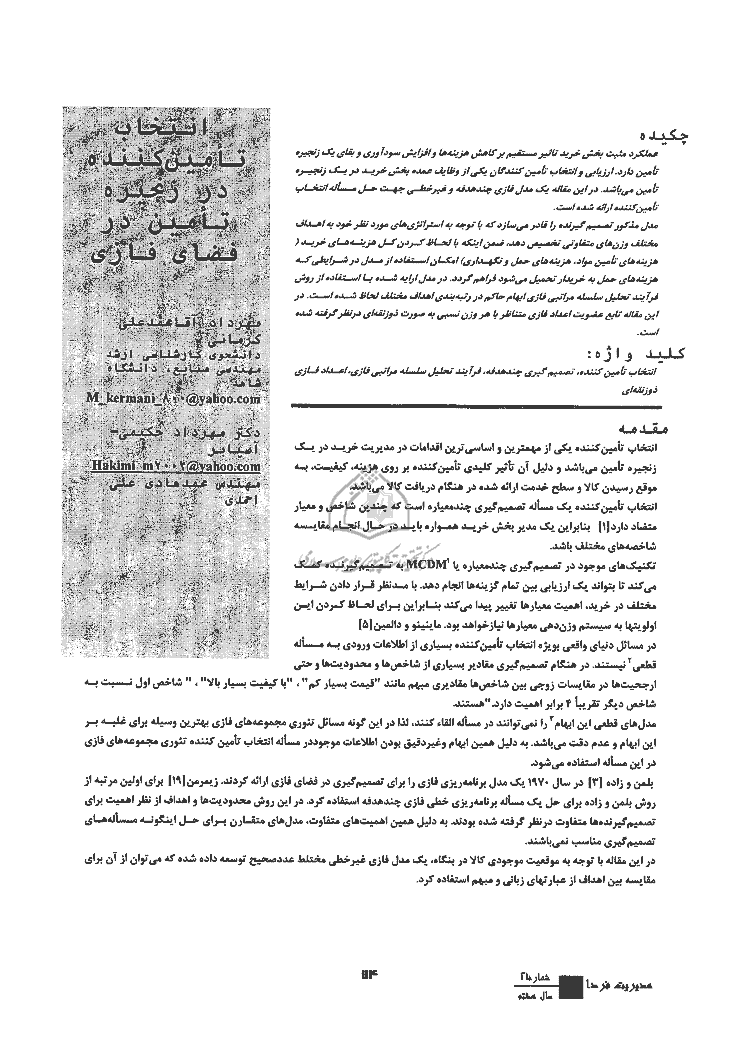 انتخاب
تأمین‌کننده
در زنجیره
تأمین در
فضای فازی
مهرداد آقامحمدعلی
کرمانی
دانشجوی کارشناسی ارشد
مهندسی صنایع، دانشگاه
شاهد
M_kermani_۸۰۰@yahoo.com
دکتر مهرداد حکیمی-
آسیابر
Hakimi_m۲۰۰۲@yahoo.com
مهندس محمدهادی علی
احمدی
چکیده
عملکرد مثبت بخش خرید تاثیر مستقیم بر کاهش هزینه‌ها و افزایش سودآوری و بقای یک زنجیره
تأمین دارد. ارزیابی و انتخاب تأمین کنندگان یکی از وظایف عمده بخش خرید در یک زنجیره
تأمین می‌باشد. در این مقاله یک مدل فازی چندهدفه و غیرخطی جهت حل مسأله انتخاب
تأمین‌کننده ارائه شده است.
مدل مذکور تصمیم گیرنده را قادر می‌سازد که با توجه به استراتژی‌های مورد نظر خود به اهداف
مختلف وزن‌های متفاوتی تخصیص دهد، ضمن اینکه با لحاظ کردن کل هزینه‌های خرید (
هزینه‌های تأمین مواد، هزینه‌های حمل و نگهداری) امکان استفاده از مدل در شرایطی که
هزینه‌های حمل به خریدار تحمیل می‌شود فراهم گردد. در مدل ارایه شده با استفاده از روش
فرآیند تحلیل سلسله مراتبی فازی ابهام حاکم در رتبه‌بندی اهداف مختلف لحاظ شده است. در
این مقاله تابع عضویت اعداد فازی متناظر با هر وزن نسبی به صورت ذوزنقه‌ای درنظر گرفته شده
است.
کلید واژه:
انتخاب تأمین کننده، تصمیم گیری چندهدفه، فرآیند تحلیل سلسله مراتبی فازی، اعداد فازی
ذوزنقه‌ای
مقدمه
انتخاب تأمین‌کننده یکی از مهمترین و اساسی‌ترین اقدامات در مدیریت خرید در یک
زنجیره تأمین می‌باشد و دلیل آن تأثیر کلیدی تأمین‌کننده بر روی هزینه، کیفیت، به
موقع رسیدن کالا و سطح خدمت ارائه شده در هنگام دریافت کالا می‌باشد.
انتخاب تأمین‌کننده یک مسأله تصمیم‌گیری چندمعیاره است که چندین شاخص و معیار
متضاد دارد[۱] بنابراین یک مدیر بخش خرید همواره باید در حال انجام مقایسه
شاخصه‌های مختلف باشد.
تکنیک‌های موجود در تصمیم‌گیری چندمعیاره یا MCDM۱ به تصمیم‌گیرنده کمک
می‌کند تا بتواند یک ارزیابی بین تمام گزینه‌ها انجام دهد. با مدنظر قرار دادن شرایط
مختلف در خرید، اهمیت معیارها تغییر پیدا می‌کند بنابراین برای لحاظ کردن این
اولویتها به سیستم وزن‌دهی معیارها نیازخواهد بود. ماینینو و دالمین[۵]
در مسائل دنیای واقعی بویژه انتخاب تأمین‌کننده بسیاری از اطلاعات ورودی به مسأله
قطعی۲ نیستند. در هنگام تصمیم‌گیری مقادیر بسیاری از شاخص‌ها و محدودیت‌ها و حتی
ارجحیت‌ها در مقایسات زوجی بین شاخص‌ها مقادیری مبهم مانند "قیمت بسیار کم" ، "با کیفیت بسیار بالا" ، " شاخص اول نسبت به
شاخص دیگر تقریباً ۴ برابر اهمیت دارد."هستند.
مدل‌های قطعی این ابهام۳ را نمی‌توانند در مسأله القاء کنند، لذا در این گونه مسائل تئوری مجموعه‌های فازی بهترین وسیله برای غلبه بر
این ابهام و عدم دقت می‌باشد. به دلیل همین ابهام وغیردقیق بودن اطلاعات موجوددر مسأله انتخاب تأمین کننده تئوری مجموعه‌های فازی
در این مسأله استفاده می‌شود.
بلمن و زاده [۳] در سال ۱۹۷۰ یک مدل برنامه‌ریزی فازی را برای تصمیم‌گیری در فضای فازی ارائه کردند. زیمرمن[۱۹] برای اولین مرتبه از
روش بلمن و زاده برای حل یک مسأله برنامه‌ریزی خطی فازی چندهدفه استفاده کرد. در این روش محدودیت‌ها و اهداف از نظر اهمیت برای
تصمیم‌گیرنده‌ها متفاوت درنظر گرفته شده بودند. به دلیل همین اهمیت‌های متفاوت، مدل‌های متقارن برای حل اینگونه مسأله‌های
تصمیم‌گیری مناسب نمی‌باشند.
در این مقاله با توجه به موقعیت موجودی کالا در بنگاه، یک مدل فازی غیرخطی مختلط عددصحیح توسعه داده شده که می‌توان از آن برای
مقایسه بین اهداف از عبارتهای زبانی و مبهم استفاده کرد.
مدیریت فردا
سال هفتم